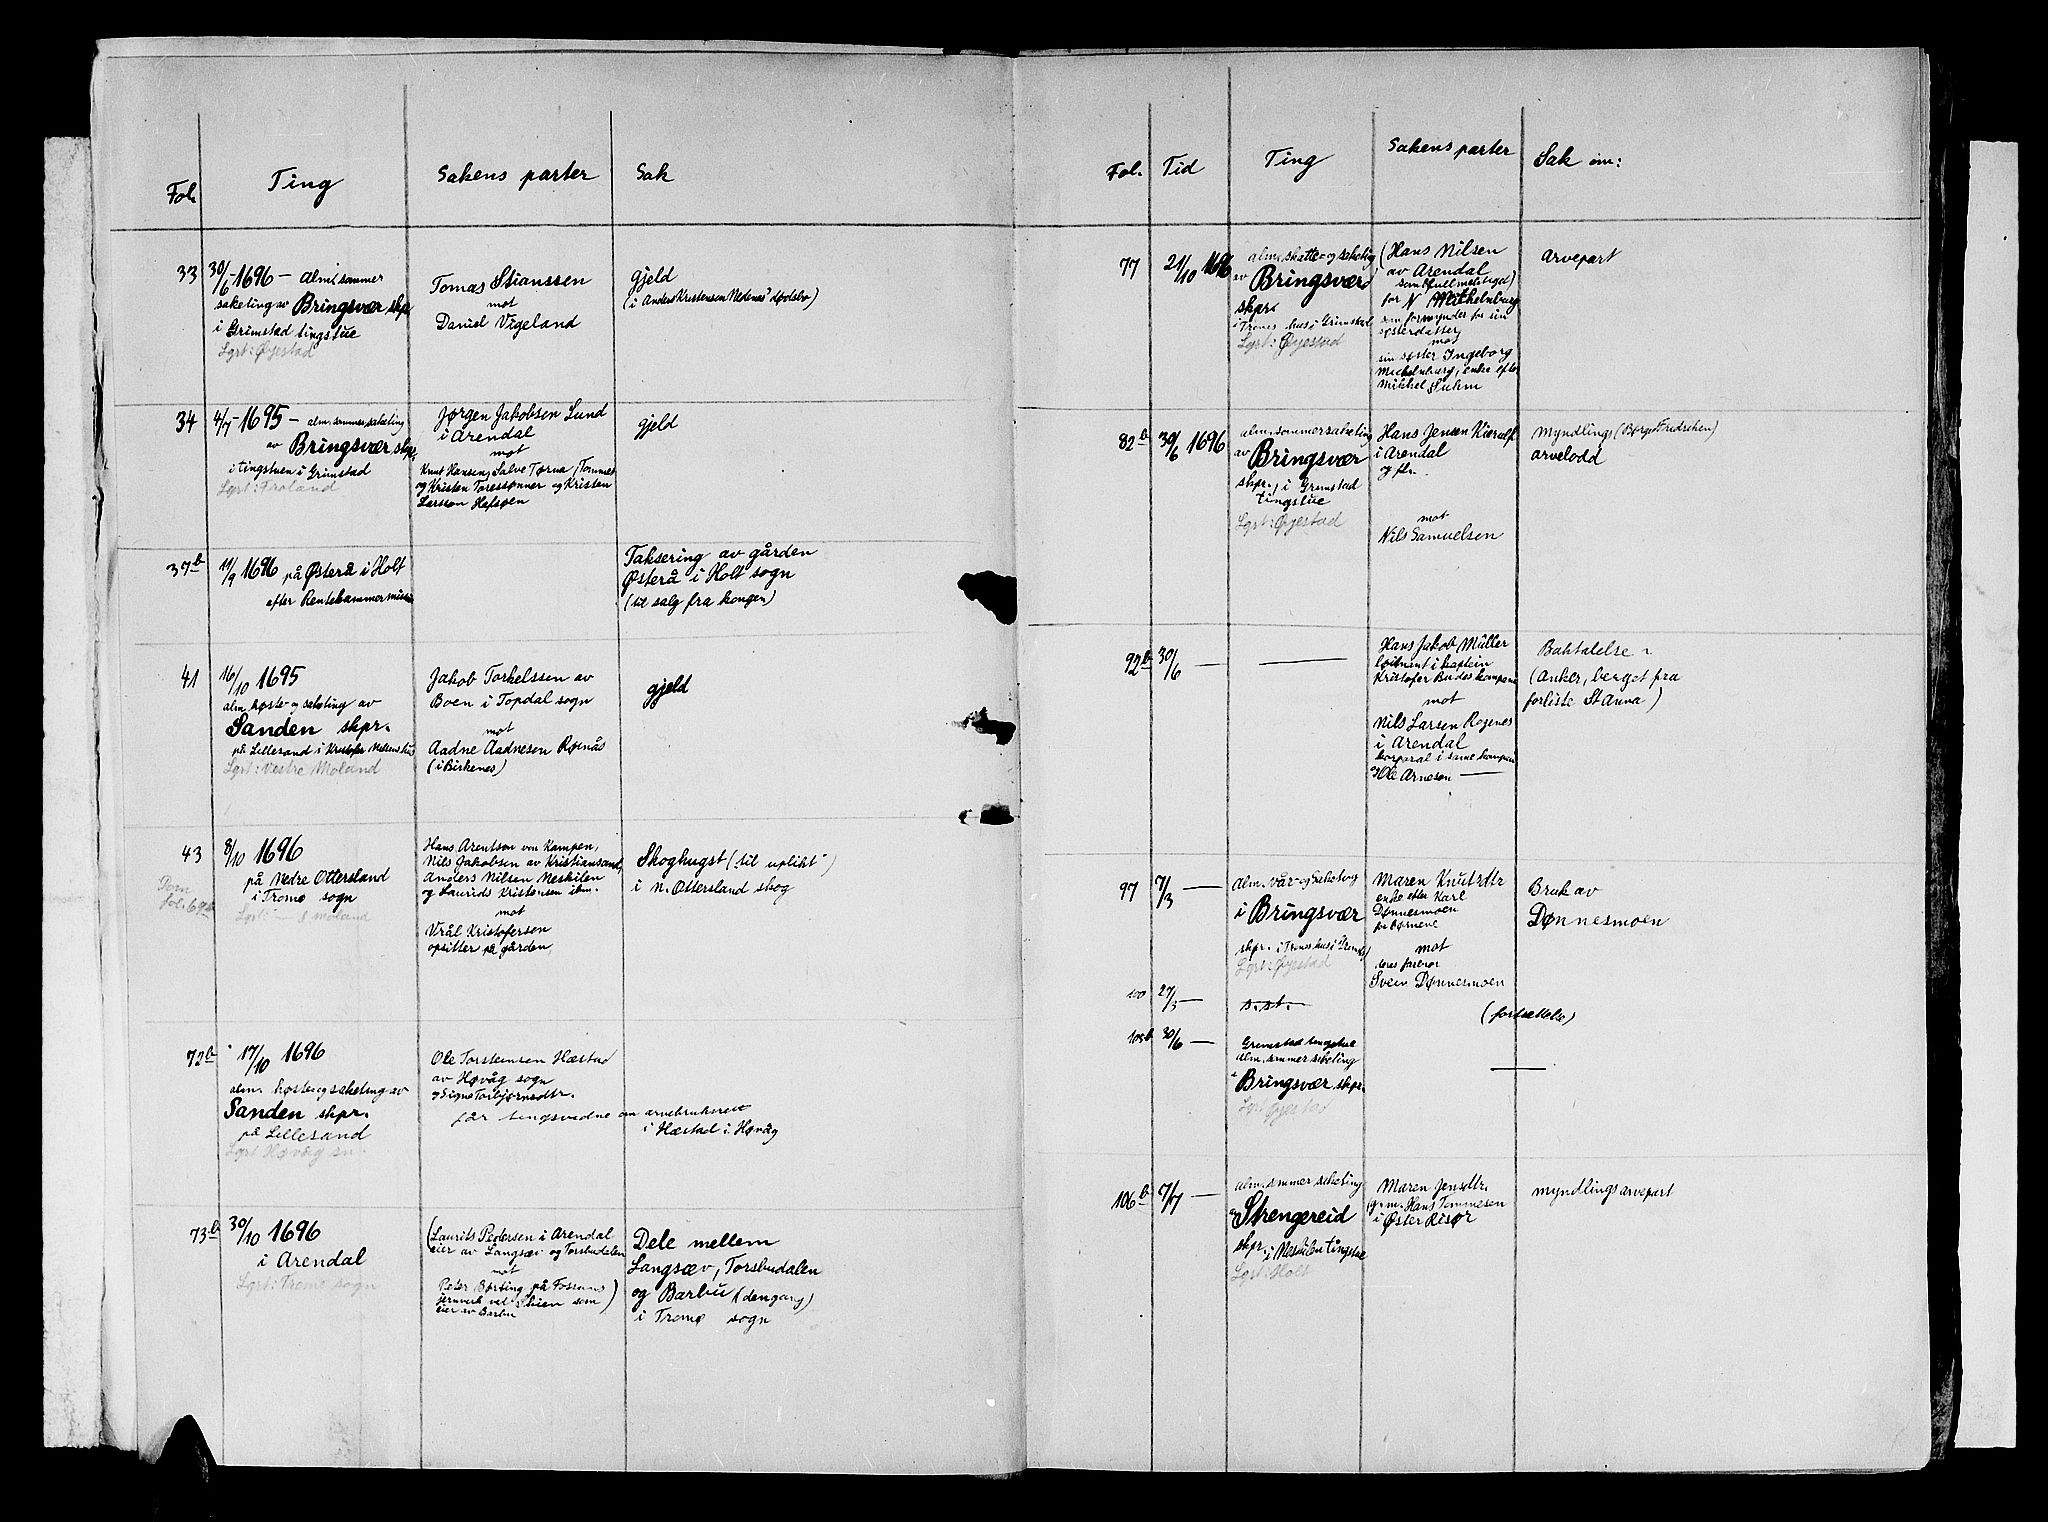 Fol.
Ting
Sakens parter
Sak
33
30/6-1696- alm. sommer
saketing av Bringsvær skpr.
i Grimstad tingstue
Lgrt: Øyestad
Tomas Stianssen
mot
Daniel Vigeland
gjeld
(i Anders Kristensen Nedenes' dødsbo)
34
4/7-1695- alm. sommersaketing
av Bringsvær skpr.
i tingstuen i Grimstad
Lgrt: Froland
Jørgen Jakobsen Lund
i Arendal
mot
Knut Hansen, Salve Torna, Tommes
og Kristen Toressønner og Kristen
Larsson Hefsøen
gjeld
37b
11/9 1696 på Østerå i Holt
efter Rentekammer
Taksering av gården
Østerå i Holt sogn
(til salg fra kongen)
41
16/10 1695
alm. høste- og saketing av
Sanden skpr.
på Lillesand i Kristofer Nielsens hus
Lgrt: Vestre Moland
Jakob Torkelssen av
Boen i Topdal sogn
mot
Aadne Aadnesen Røinås
(i Birkenes)
gjeld
43
Dom
fol. 69
8/10 1696
på Nedre Ottersland
i Tromø sogn
Lgrt: moland
Hans Arentson von Kampen,
Nils Jakobsen av Kristiansand,
Anders Nilsen Neskilen
og Laurids Kristensen ibm.
mot
Vrål Kristofersen
opsitter på gården
Skoghugst (til uplikt)
i n. Ottersland skog
72b
17/10 1696
alm. høste- og saketing av
Sanden skpr.
på Lillesand
Lgrt: Høvåg
Ole Torsteinsen Hæstad
av Høvåg sogn
og Signe Torbjørnsdtr.
får tingsvidne om arvebruksrett
i Hæstad i Høvåg
73b
30/10 1696
i Arendal
Lgrt: Tromø sogn
(Laurits Pedersen i Arendal
eier av Langsæv og Torsbudalen
mot
Peter Børting på Fossums
jernverk vel Skien som
eier av Barbu)
Dele mellem
Langsæv, Torsbudalen
og Barbu (dengang)
i Tromø sogn
Fol.
Tid
Ting
Sakens parter
Sak om:
77
21/10 1696
alm. skatte- og saketing
av Bringsvær
skpr.
i Trones hus i Grimstad
Lgrt: Øyestad
(Hans Nilsen
av Arendal
som fullmektiged)
for N Mickelnburg
som formynder for sin
søsterdatter
mot
sin søster Ingeborg
Mickelnburg, enke efter
Mikkel Suhm
Arvepart
82b
30/6 1696
alm. sommersaketing
av Bringsvær
skpr., i Grimstad
tingstue
Lgrt: Øyestad
Hans Jensen Kierulf
i Arendal
og fl.
mot
Nils Samuelsen
myndlings (Børge Fredrichsen)
arvelodd
92b
30/6 —
—
Hans Jakob Müller
løitnant i kaptein
Kristofer Budes kompani
mot
Nils Larsen Rojenes
i Arendal
korporal i same kompani
og Ole Arnesøn —
Baktalelse
(anker, berget fra
forliste St Anna)
97
7/3 —
alm. vår- og saketing
i Bringsvær
skpr. i Trones hus i Grimstad
Lgrt: Øyestad
Maren Knutsdtr
enke efter Karl
Dønnesmoen
for børnene
mot
deres farbror
Svein Dønnesmoen
Bruk av
Dønnesmoen
100
27/3 —
s.st.
(fortsettelse)
105b
30/6 —
Grimstad tingstue
alm. sommer saketing
Bringsvær skpr.
Lgrt: Øyestad
—
106b
7/7 —
alm. sommer saketing
av Strengereid
skpr. i Neskilen tingstue
Lgrt: Holt
Maren Jensdtr.
g. m. Hans Temmesen
i Øster Risør
myndlings arvepart